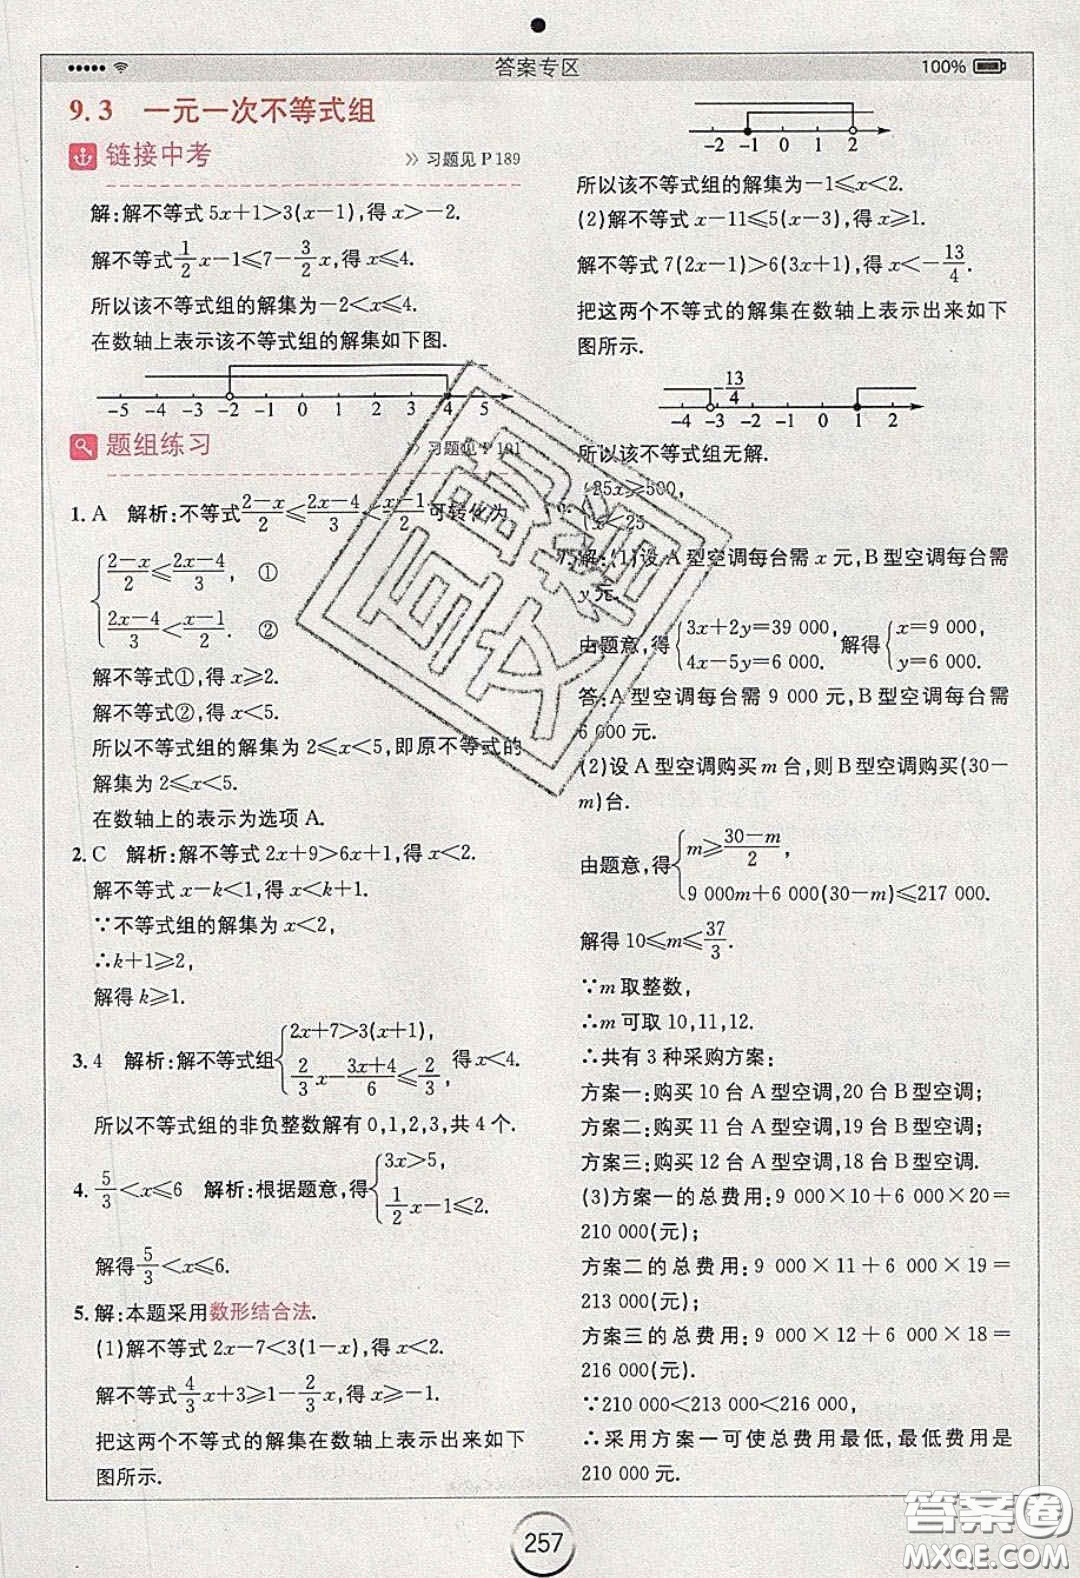 答案专区
100%
9.3 一元一次不等式组
链接中考
》习题见P189
解:解不等式5x+1>3(x-1),得x>-2.
解不等式1/2x-1≤7-3/2x,得x≤4.
所以该不等式组的解集为-2<x≤4.
在数轴上表示该不等式组的解集如下图.
-5 -4 -3 -2 -1 0 1 2 3 4 5
题组练习
》习题见P191
1. A 解析:不等式(2-x)/2≤(2x-4)/3<(x-1)/2可转化为
{(2-x)/2≤(2x-4)/3, ①
(2x-4)/3<(x-1)/2. ②
解不等式①,得x≥2.
解不等式②,得x<5.
所以不等式组的解集为2≤x<5,即原不等式的
解集为2≤x<5.
在数轴上的表示为选项A.
2. C 解析:解不等式2x+9>6x+1,得x<2.
解不等式x-k<1,得x<k+1.
∵不等式组的解集为x<2,
∴k+1≥2,
解得k≥1.
3. 4 解析:解不等式组{2x+7>3(x+1), 2/3x-(3x+4)/6≤2/3, 得x<4.
所以不等式组的非负整数解有0,1,2,3,共4个.
4. 5/3<x≤6 解析:根据题意,得{3x>5, 1/2x-1≤2.
解得5/3<x≤6.
5. 解:本题采用数形结合法.
(1)解不等式2x-7<3(1-x),得x<2.
解不等式4/3x+3≥1-2/3x,得x≥-1.
把这两个不等式的解集在数轴上表示出来如下
图所示.
-2 -1 0 1 2
所以该不等式组的解集为-1≤x<2.
(2)解不等式x-11≤5(x-3),得x≥1.
解不等式7(2x-1)>6(3x+1),得x<-13/4.
把这两个不等式的解集在数轴上表示出来如下
图所示.
-13/4
-4 -3 -2 -1 0 1 2
所以该不等式组无解.
6. {25x≥500,
x<25
7. 解:(1)设A型空调每台需x元,B型空调每台需
y元.
由题意,得{3x+2y=39 000, 4x-5y=6 000. 解得{x=9 000, y=6 000.
答:A型空调每台需9 000元,B型空调每台需
6 000元.
(2)设A型空调购买m台,则B型空调购买(30-
m)台.
由题意,得{m≥(30-m)/2,
9 000m+6 000(30-m)≤217 000.
解得10≤m≤37/3.
∵m取整数,
∴m可取10,11,12.
∴共有3种采购方案:
方案一:购买10台A型空调,20台B型空调;
方案二:购买11台A型空调,19台B型空调;
方案三:购买12台A型空调,18台B型空调.
(3)方案一的总费用:9 000×10+6 000×20=
210 000(元);
方案二的总费用:9 000×11+6 000×19=
213 000(元);
方案三的总费用:9 000×12+6 000×18=
216 000(元).
∵210 000<213 000<216 000,
∴采用方案一可使总费用最低,最低费用是
210 000元.
257
答案圈
MXQE.COM